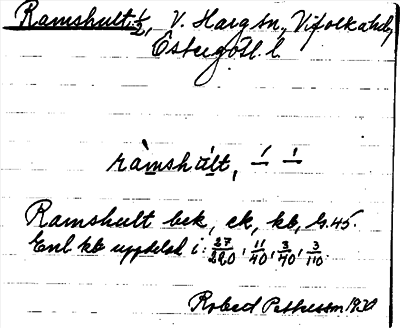 Ramshult, 1/2, V. Harg sn, Vifolka hd,
Östergötl. l.
ràmshúlt, –́ –́
Ramshult bek, ek, kb, G. 45.
Enl kb uppdelad i: 27/290, 11/40, 3/40, 3/110.
Robert Pettersson 1930